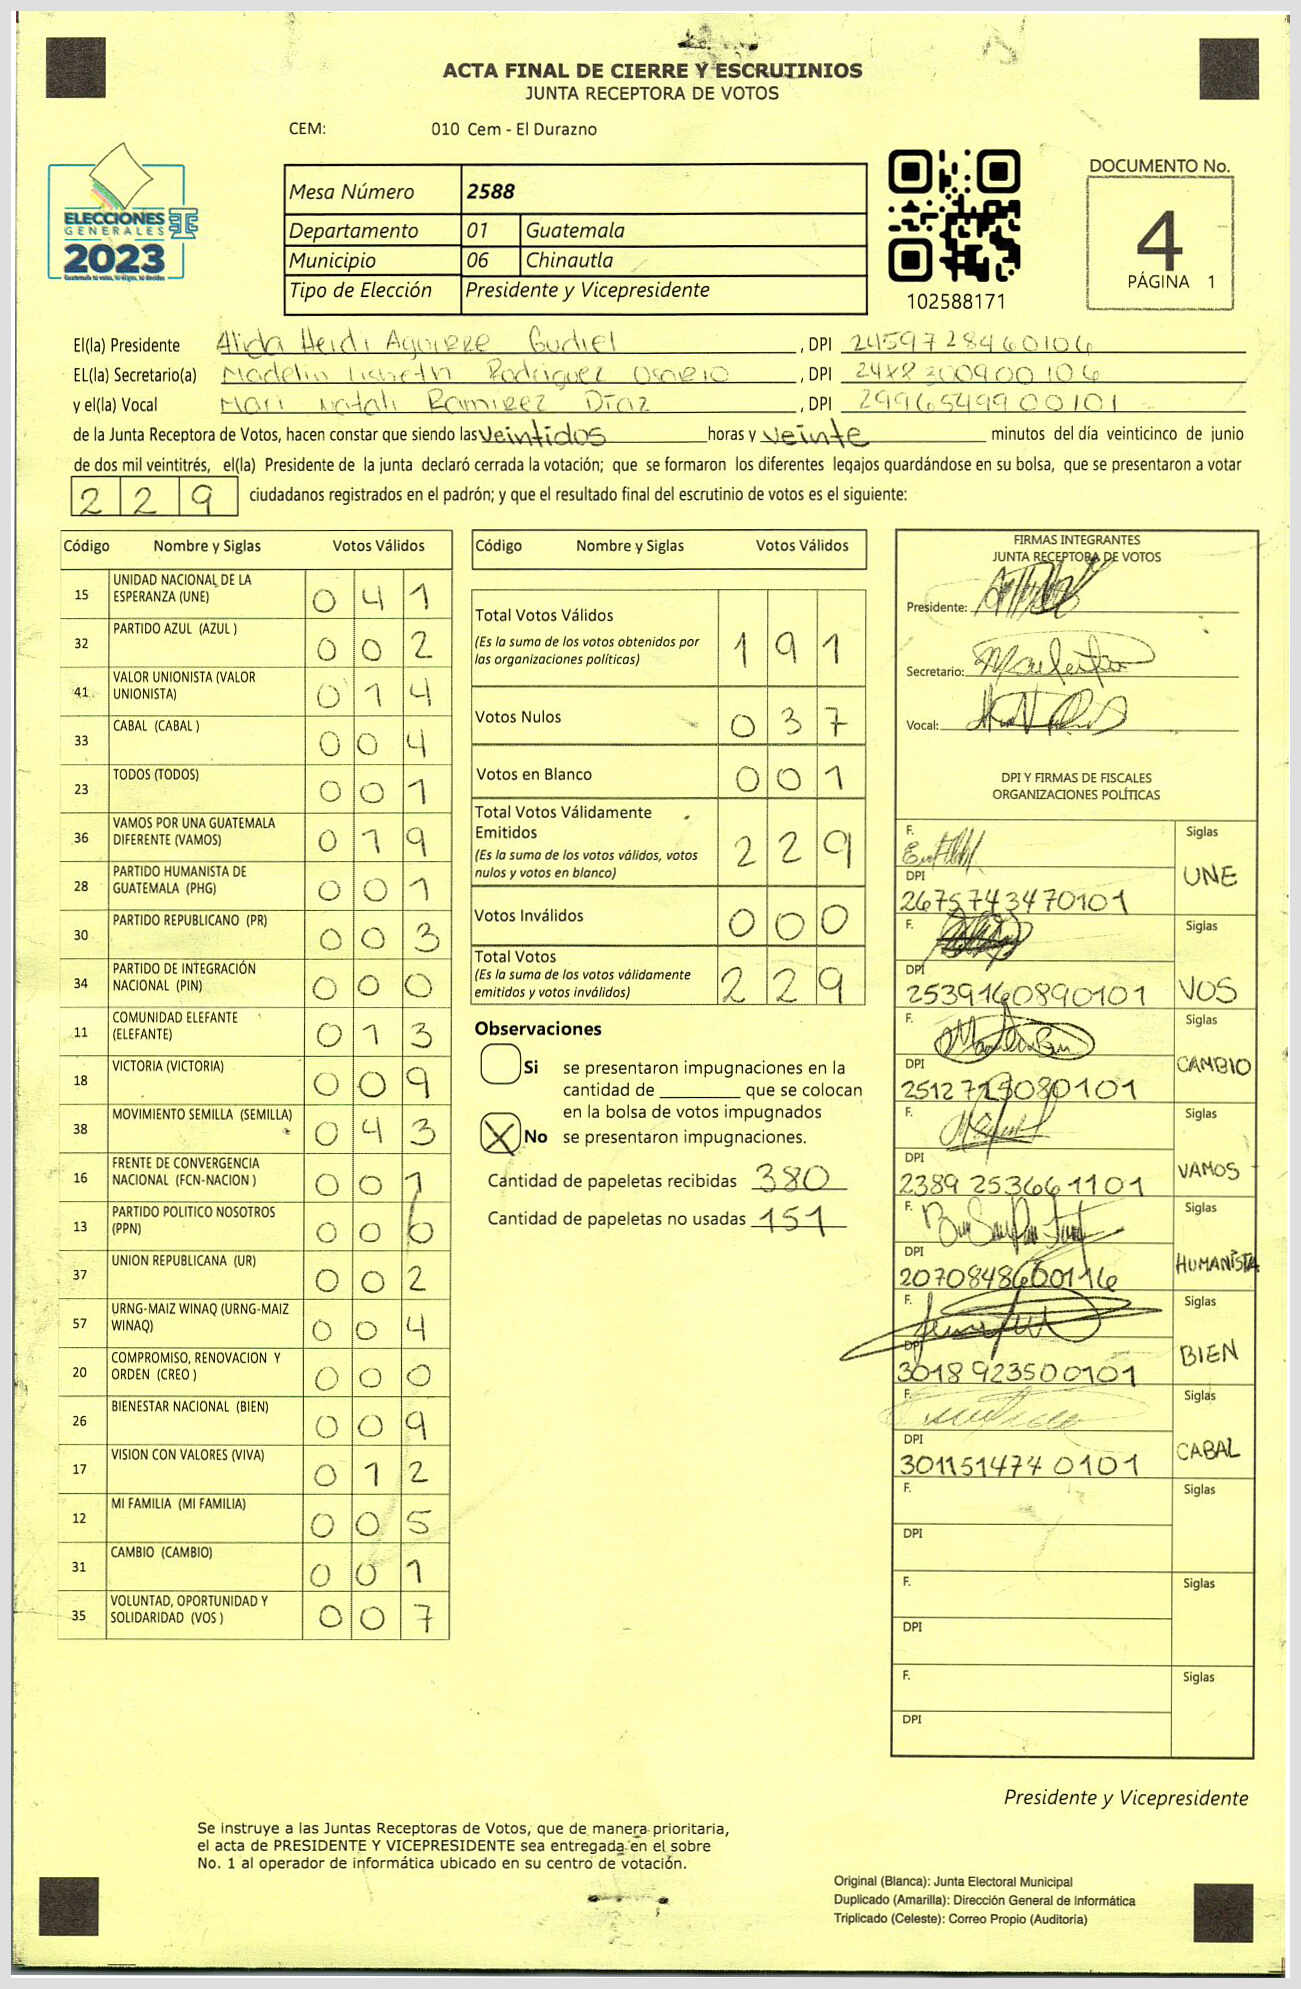 ACTA FINAL DE CIERRE Y ESCRUTINIOS
JUNTA RECEPTORA DE VOTOS
CEM: 010 Cem - El Durazno
ELECCIONES
GENERALES
2023
Mesa Número 2588
Departamento 01 Guatemala
Municipio 06 Chinautla
Tipo de Elección Presidente y Vicepresidente
102588171
DOCUMENTO No.
4
PÁGINA 1
El(la) Presidente Alida Heidi Aguirre Gudiel, DPI 2459728460106
EL(la) Secretario(a) Madelin Lisbeth Rodriguez Osorio, DPI
y el(la) Vocal Mari Natali Ramirez Díaz, DPI 2996549900101
de la Junta Receptora de Votos, hacen constar que siendo las veintidos horas y veinte minutos del día veinticinco de junio
de dos mil veintitrés, el(la) Presidente de la junta declaró cerrada la votación; que se formaron los diferentes legajos quardándose en su bolsa, que se presentaron a votar
229 ciudadanos registrados en el padrón; y que el resultado final del escrutinio de votos es el siguiente:
Código Nombre y Siglas Votos Válidos
15 UNIDAD NACIONAL DE LA ESPERANZA (UNE) 041
32 PARTIDO AZUL (AZUL ) 002
41 VALOR UNIONISTA (VALOR UNIONISTA) 014
33 CABAL (CABAL ) 004
23 TODOS (TODOS) 001
36 VAMOS POR UNA GUATEMALA DIFERENTE (VAMOS) 019
28 PARTIDO HUMANISTA DE GUATEMALA (PHG) 001
30 PARTIDO REPUBLICANO (PR) 003
34 PARTIDO DE INTEGRACIÓN NACIONAL (PIN) 000
11 COMUNIDAD ELEFANTE (ELEFANTE) 013
18 VICTORIA (VICTORIA) 009
38 MOVIMIENTO SEMILLA (SEMILLA) 043
16 FRENTE DE CONVERGENCIA NACIONAL (FCN-NACION ) 001
13 PARTIDO POLITICO NOSOTROS (PPN) 000
37 UNION REPUBLICANA (UR) 002
57 URNG-MAIZ WINAQ (URNG-MAIZ WINAQ) 004
20 COMPROMISO, RENOVACION Y ORDEN (CREO ) 000
26 BIENESTAR NACIONAL (BIEN) 009
17 VISION CON VALORES (VIVA) 012
12 MI FAMILIA (MI FAMILIA) 005
31 CAMBIO (CAMBIO) 001
35 VOLUNTAD, OPORTUNIDAD Y SOLIDARIDAD (VOS ) 007
Código Nombre y Siglas Votos Válidos
Total Votos Válidos 191
(Es la suma de los votos obtenidos por
las organizaciones políticas)
Votos Nulos 037
Votos en Blanco 001
Total Votos Válidamente
Emitidos 229
(Es la suma de los votos válidos, votos
nulos y votos en blanco)
Votos Inválidos 000
Total Votos 229
(Es la suma de los votos válidamente
emitidos y votos inválidos)
Observaciones
Si se presentaron impugnaciones en la
cantidad de ________ que se colocan
en la bolsa de votos impugnados
X No se presentaron impugnaciones.
Cantidad de papeletas recibidas 380
Cantidad de papeletas no usadas 151
FIRMAS INTEGRANTES
JUNTA RECEPTORA DE VOTOS
Presidente:
Secretario:
Vocal:
DPI Y FIRMAS DE FISCALES
ORGANIZACIONES POLÍTICAS
F. Siglas
UNE
DPI
2675743470101
F. Siglas
DPI
2539160890101 VOS
F. Siglas
CAMBIO
DPI
F. Siglas
DPI
VAMOS
2389253661101
F. Siglas
DPI
HUMANISTA
F. Siglas
DPI
BIEN
3018923500101
F. Siglas
DPI
CABAL
3011514740101
F. Siglas
DPI
F. Siglas
DPI
F. Siglas
DPI
Presidente y Vicepresidente
Se instruye a las Juntas Receptoras de Votos, que de manera prioritaria,
el acta de PRESIDENTE Y VICEPRESIDENTE sea entregada en el sobre
No. 1 al operador de informática ubicado en su centro de votación.
Original (Blanca): Junta Electoral Municipal
Duplicado (Amarilla): Dirección General de Informática
Triplicado (Celeste): Correo Propio (Auditoría)